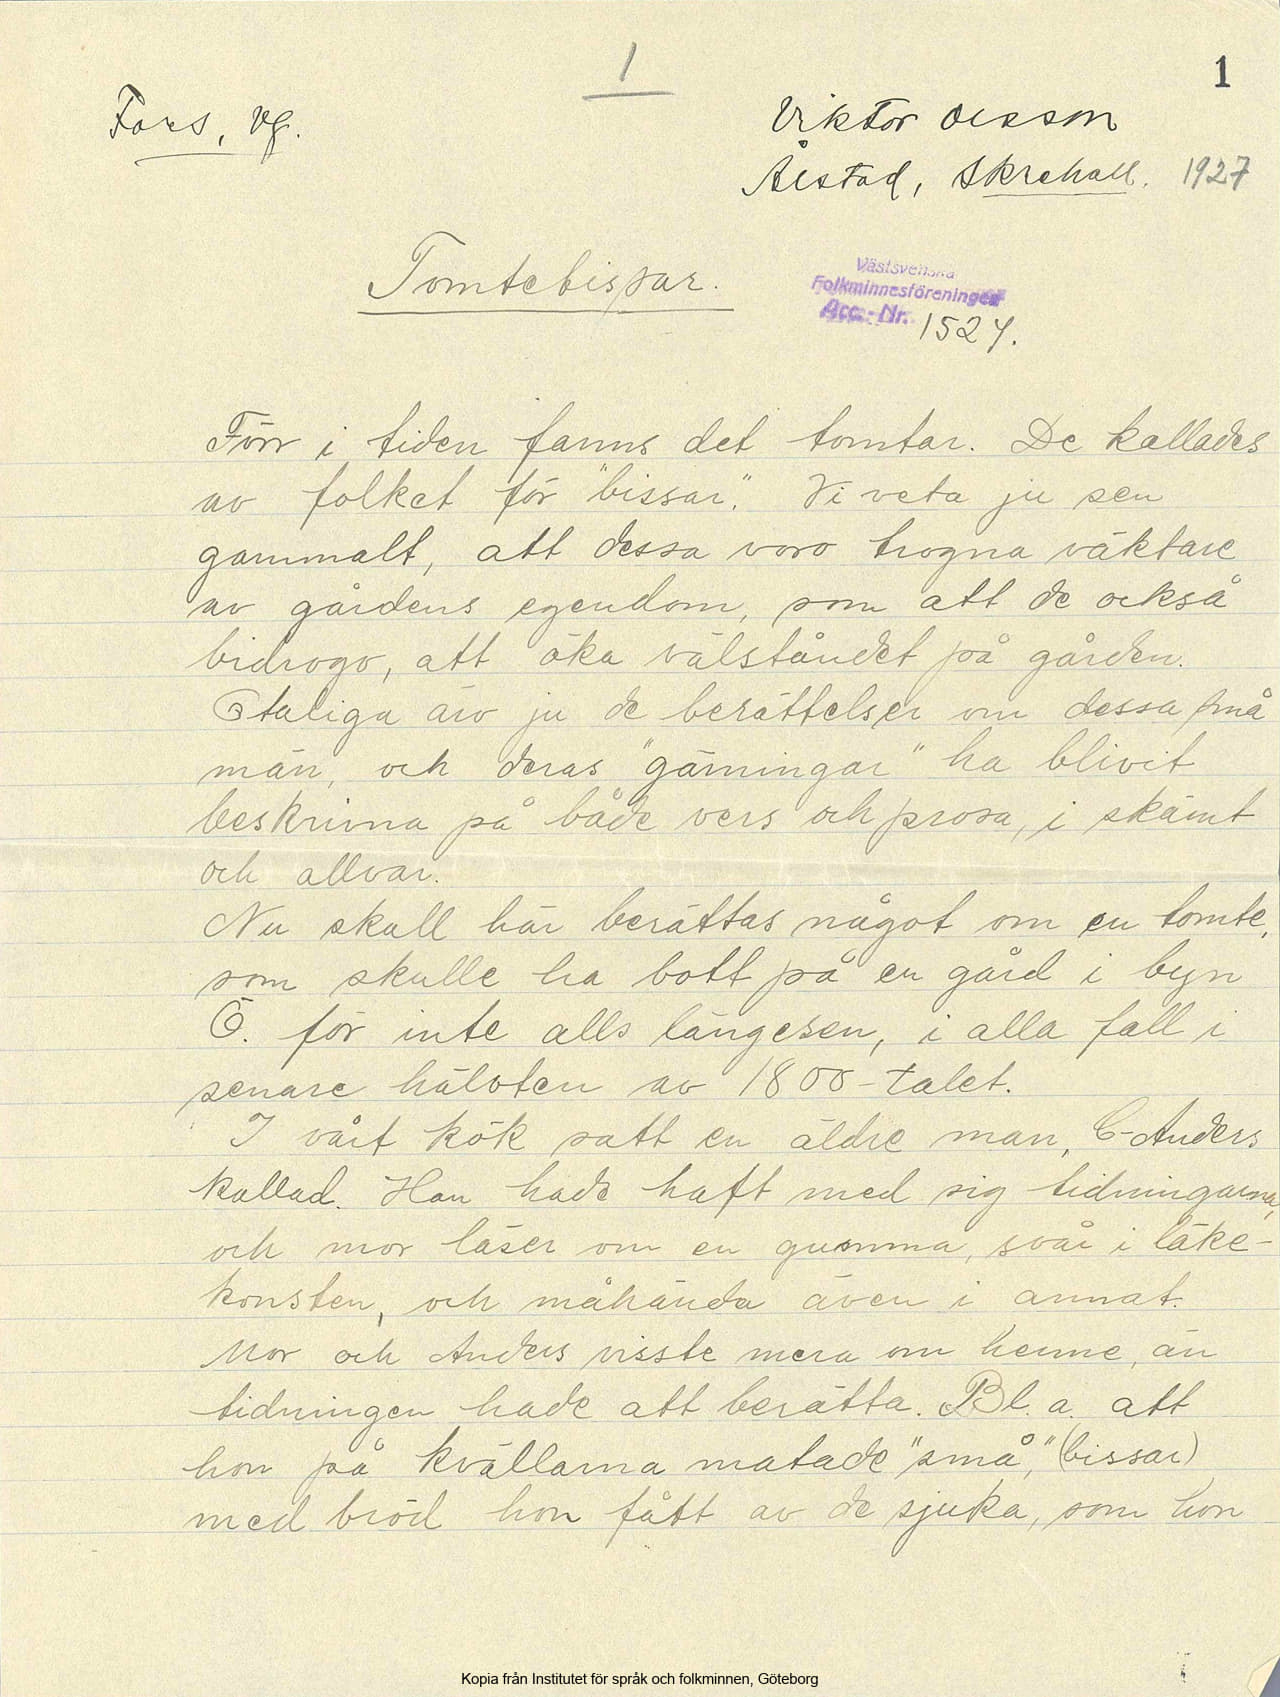 1
1
Fors, Vg.
Viktor Olsson
Ålstad, Skrehall. 1927
Tomtebissar.
Västsvenska
Folkminnesföreningen
Acc.-Nr. 1527.
Förr i tiden fanns det tomtar. De kallades
av folket för "bissar". Vi veta ju sen
gammalt, att dessa voro trogna väktare
av gårdens egendom, som att de också
bidrogo, att öka välståndet på gården.
Otaliga äro ju de berättelser om dessa små
män, och deras "gärningar" ha blivit
beskrivna på både vers och prosa, i skämt
och allvar.
Nu skall här berättas något om en tomte,
som skulle ha bott på en gård i byn
Ö. för inte alls längesen, i alla fall i
senare hälvten av 1800-talet.
I vårt kök satt en äldre man, C-Anders
kallad. Han hade haft med sig tidningarna,
och mor läser om en gumma, svår i läke-
konsten, och måhända även i annat.
Mor och Anders visste mera om henne, än
tidningen hade att berätta. Bl. a. att
hon på kvällarna matade "små", (bissar)
med bröd hon fått av de sjuka, som hon
Kopia från Institutet för språk och folkminnen, Göteborg